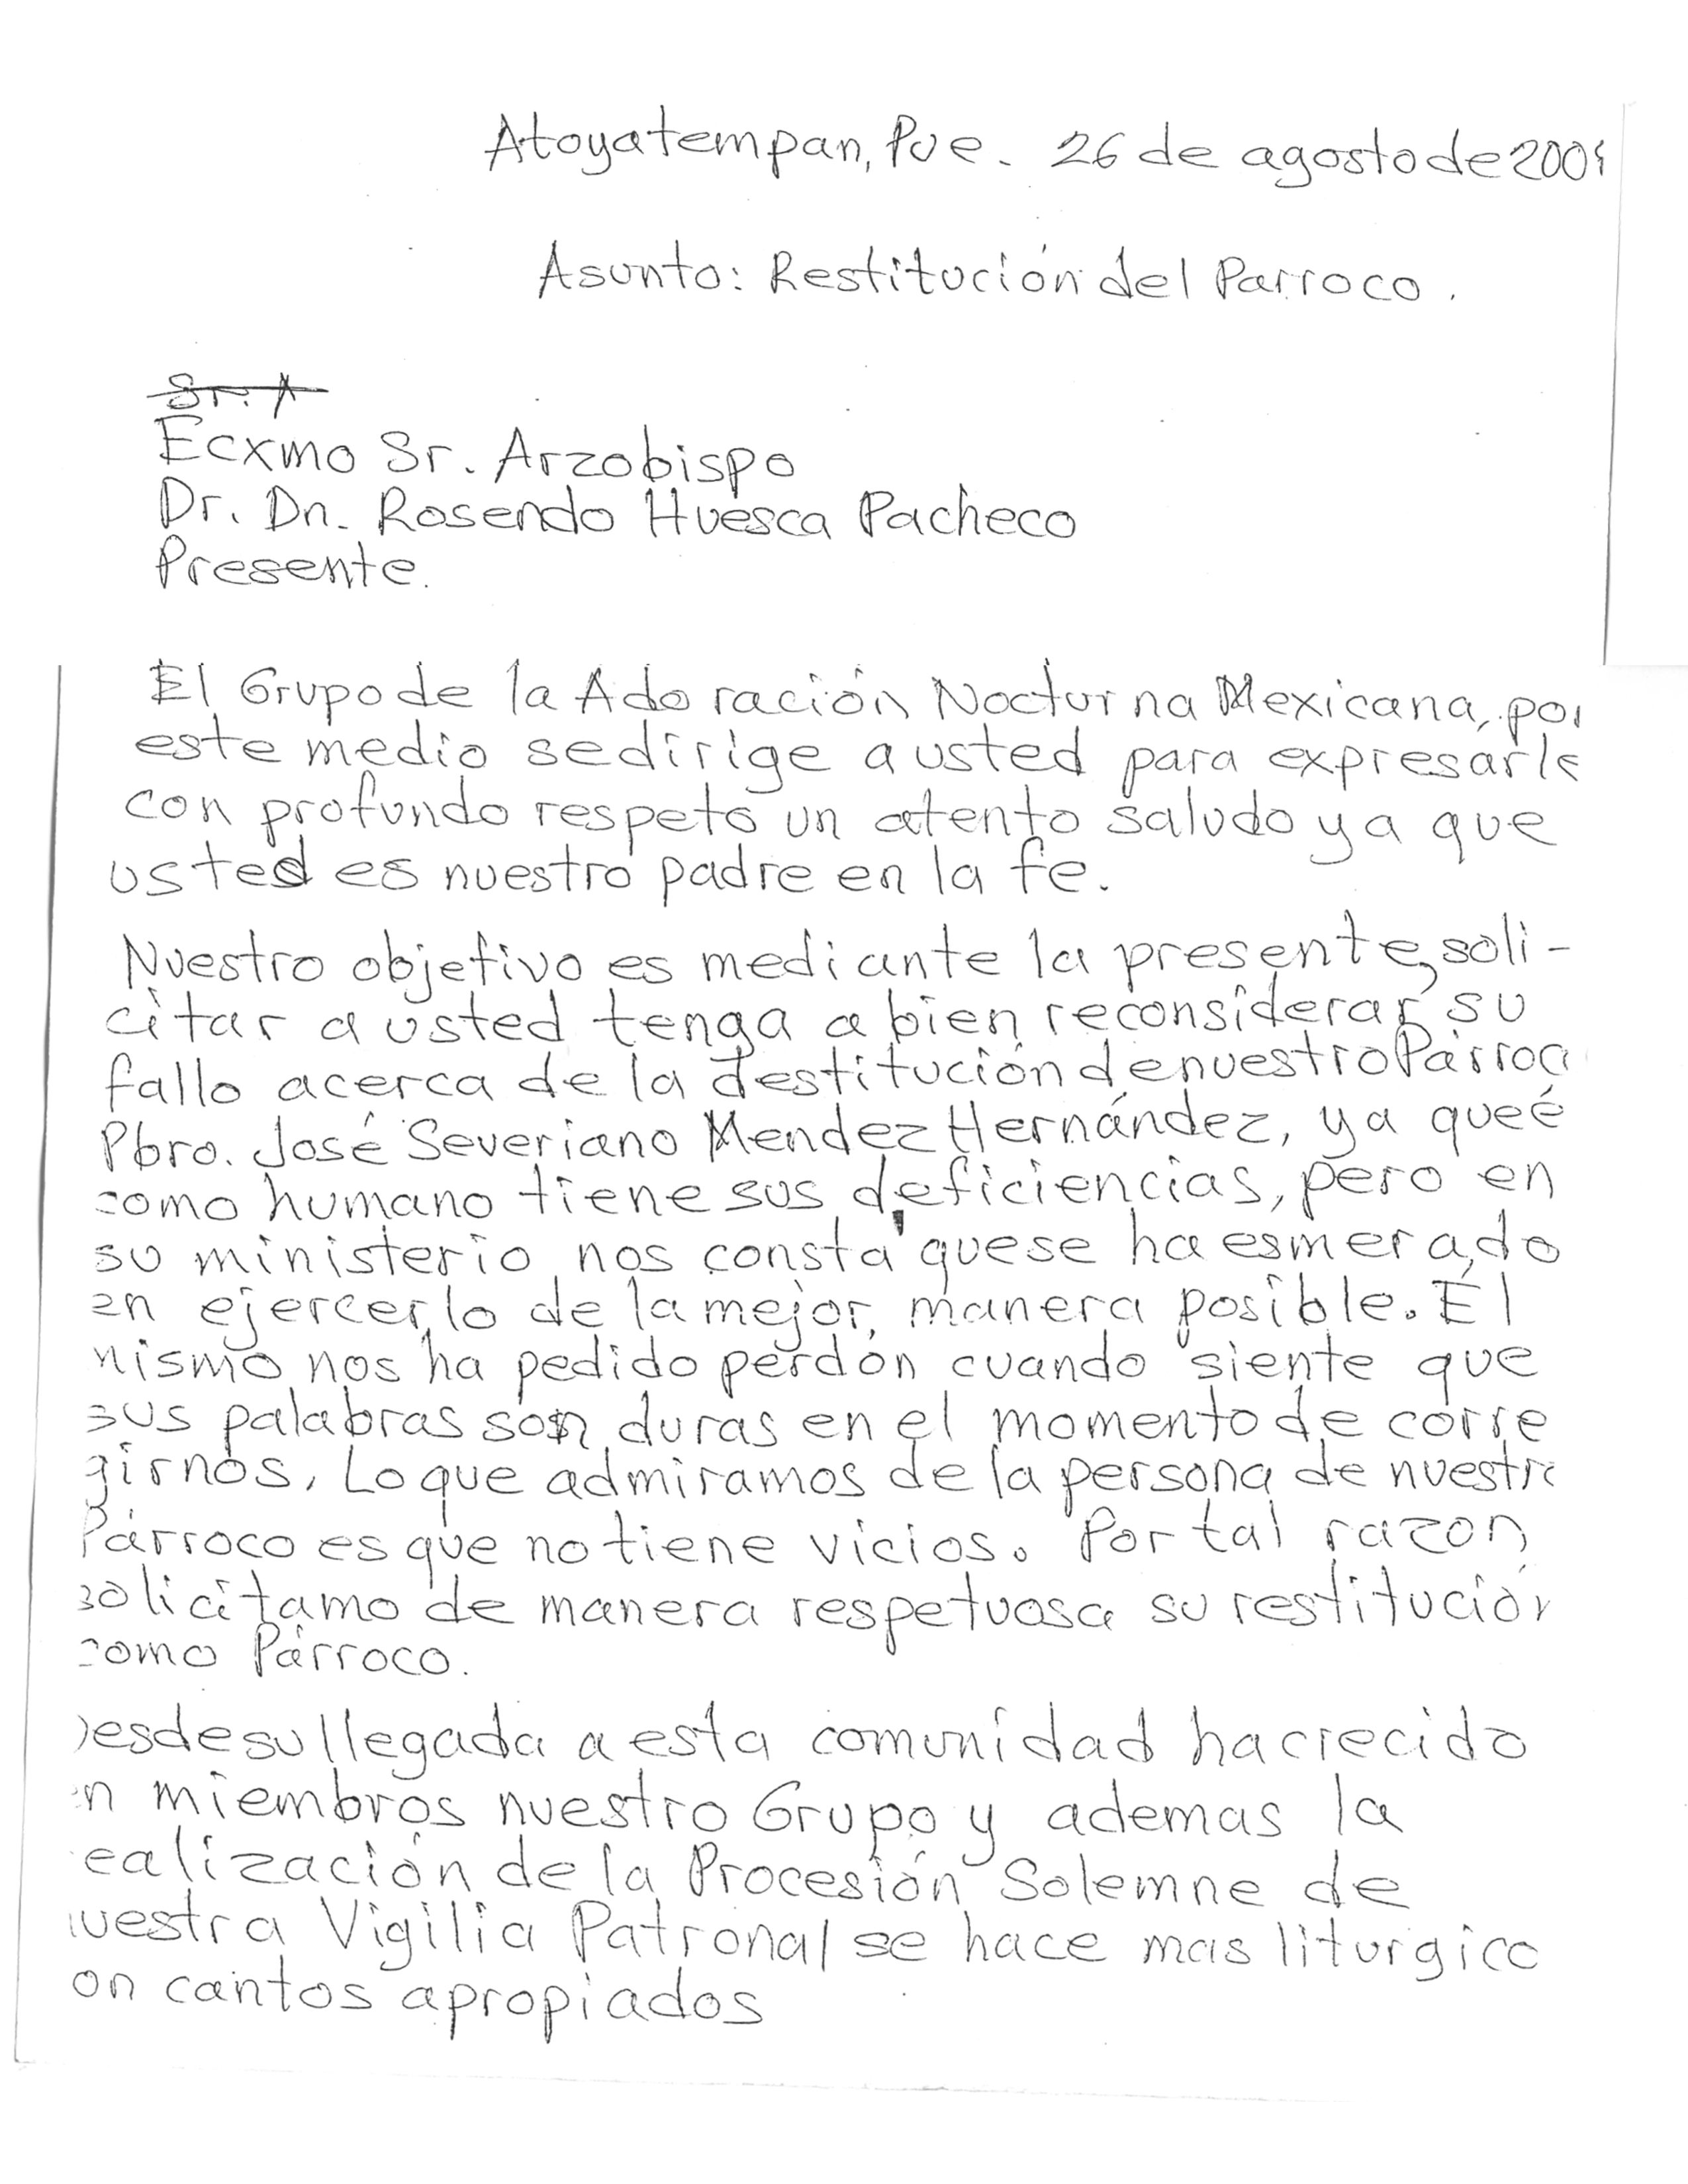 Atoyatempan, Pue. 26 de agosto de 200
Asunto: Restitución del Parroco.
Sr. A
Ecxmo Sr. Arzobispo
Dr. Dn. Rosendo Huesca Pacheco
Presente.
El Grupo de la Adoración Nocturna Mexicana, por
este medio se dirige a usted para expresarle
con profundo respeto un atento saludo ya que
usted es nuestro padre en la fe.
Nuestro objetivo es mediante la presente, soli-
citar a usted tenga a bien reconsiderar su
fallo acerca de la destitución de nuestro Párroco
Pbro. José Severiano Mendez Hernández, ya que é
como humano tiene sus deficiencias, pero en
su ministerio nos consta que se ha esmerado
en ejercerlo de la mejor manera posible. Él
mismo nos ha pedido perdón cuando siente que
sus palabras son duras en el momento de corre
girnos. Lo que admiramos de la persona de nuestro
Párroco es que no tiene vicios. Por tal razon
solicitamo de manera respetuosa su restitución
como Párroco.
Desde su llegada a esta comunidad ha crecido
en miembros nuestro Grupo y ademas la
ealización de la Procesión Solemne de
nuestra Vigilia Patronal se hace mas liturgico
on cantos apropiados